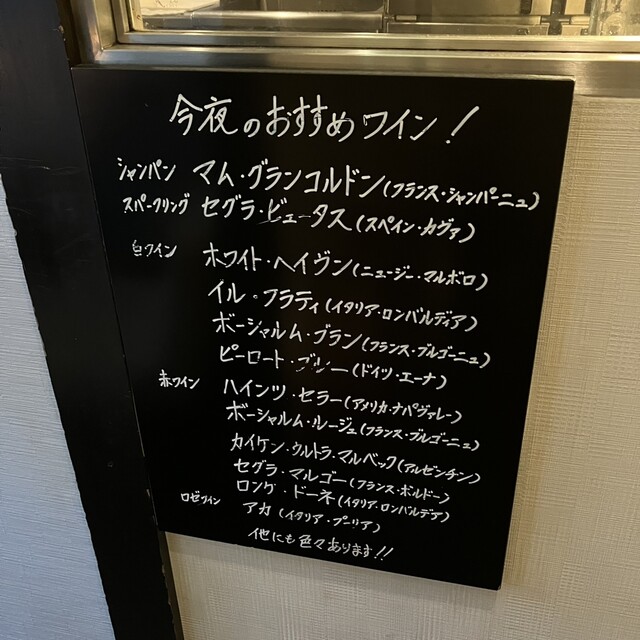 今夜のおすすめワイン!
シャンパン マム・グランコルドン(フランス・シャンパーニュ)
スパークリング セグラ・ビュータス(スペイン・カヴァ)
白ワイン ホワイト・ヘイヴン(ニュージー・マルボロ)
イル・フラティ(イタリア・ロンバルディア)
ボーシャルム・ブラン(フランス・ブルゴーニュ)
ピーロート・ブルー(ドイツ・ナーエ)
赤ワイン ハインツ・セラー(アメリカ・ナパヴァレー)
ボーシャルム・ルージュ(フランス・ブルゴーニュ)
カイケン・ウルトラ・マルベック(アルゼンチン)
セグラ・マルゴー(フランス・ボルドー)
ロンゲ・ドーネ(イタリア・ロンバルデア)
ロゼワイン アカ(イタリア・プーリア)
他にも色々あります!!